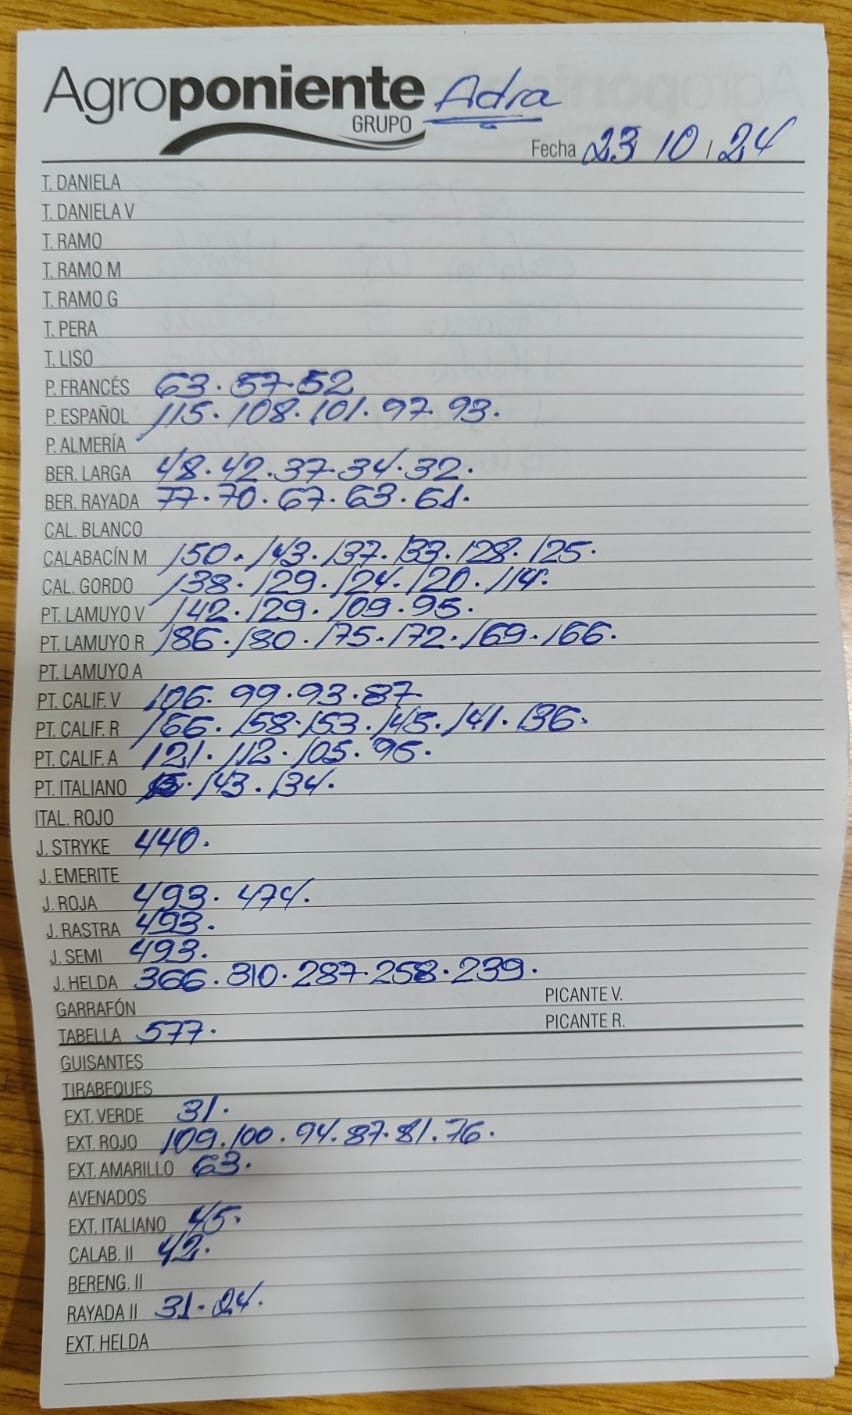 Agroponiente Adra
GRUPO
Fecha 23/10/24
T. DANIELA
T. DANIELA V
T. RAMO
T. RAMO M
T. RAMO G
T. PERA
T. LISO
P. FRANCÉS 63. 57. 52
P. ESPAÑOL 115. 108. 101. 97. 93.
P. ALMERÍA
BER. LARGA 48. 42. 37. 34. 32.
BER. RAYADA 77. 70. 67. 63. 61.
CAL. BLANCO
CALABACÍN M 150. 143. 137. 133. 128. 125.
CAL. GORDO 138. 129. 124. 120. 114.
PT. LAMUYO V 142. 129. 109. 95.
PT. LAMUYO R 186. 180. 175. 172. 169. 166.
PT. LAMUYO A
PT. CALIF. V 106. 99. 93. 87
PT. CALIF. R 166. 158. 153. 145. 141. 136.
PT. CALIF. A 121. 112. 105. 95.
PT. ITALIANO 143. 134.
ITAL. ROJO
J. STRYKE 440.
J. EMERITE
J. ROJA 493. 474.
J. RASTRA 493.
J. SEMI 493.
J. HELDA 366. 310. 287. 258. 239.
GARRAFÓN PICANTE V.
TABELLA 577. PICANTE R.
GUISANTES
TIRABEQUES
EXT. VERDE 31.
EXT. ROJO 109. 100. 94. 87. 81. 76.
EXT. AMARILLO 63.
AVENADOS
EXT. ITALIANO 45.
CALAB. II 42.
BERENG. II
RAYADA II 31. 24.
EXT. HELDA